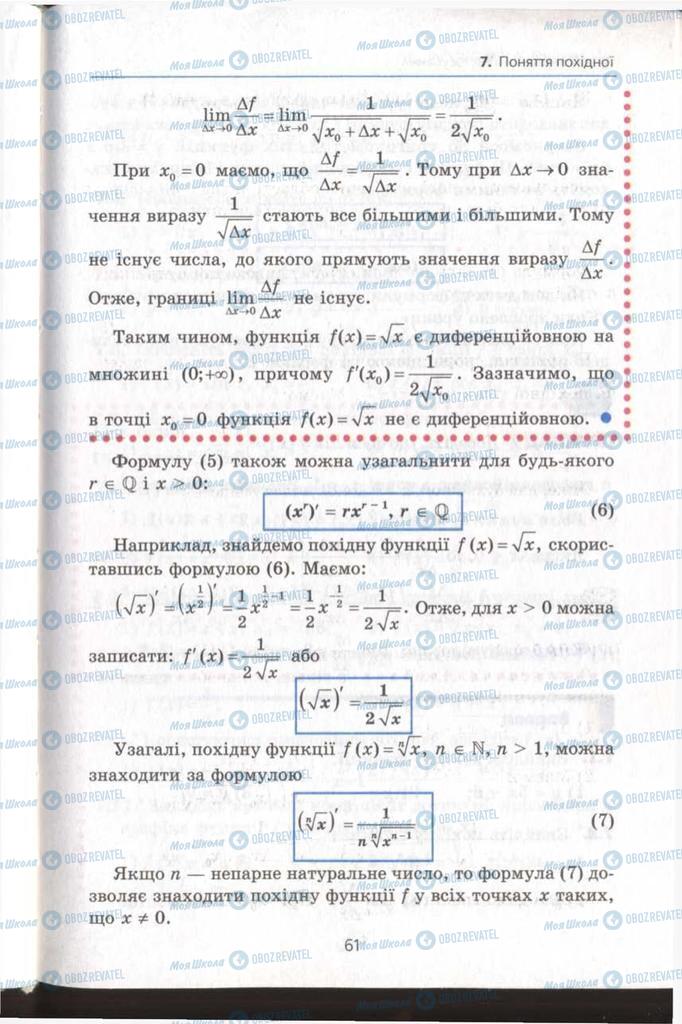 7. Поняття похідної
lim Δx→0 Δf/Δx = lim Δx→0 1/(√(x₀ + Δx) + √x₀) = 1/(2√x₀).
При x₀ = 0 маємо, що Δf/Δx = 1/√Δx. Тому при Δx → 0 зна-
чення виразу 1/√Δx стають все більшими і більшими. Тому
не існує числа, до якого прямують значення виразу Δf/Δx.
Отже, границі lim Δx→0 Δf/Δx не існує.
Таким чином, функція f(x) = √x є диференційовною на
множині (0;+∞), причому f′(x₀) = 1/(2√x₀). Зазначимо, що
в точці x₀ = 0 функція f(x) = √x не є диференційовною.
Формулу (5) також можна узагальнити для будь-якого
r ∈ ℚ і x > 0:
(xʳ)′ = rxʳ⁻¹, r ∈ ℚ (6)
Наприклад, знайдемо похідну функції f (x) = √x, скорис-
тавшись формулою (6). Маємо:
(√x)′ = (x^(1/2))′ = 1/2 x^(1/2 − 1) = 1/2 x^(−1/2) = 1/(2√x). Отже, для x > 0 можна
записати: f′ (x) = 1/(2√x) або
(√x)′ = 1/(2√x)
Узагалі, похідну функції f (x) = ⁿ√x, n ∈ ℕ, n > 1, можна
знаходити за формулою
(ⁿ√x)′ = 1/(n ⁿ√(xⁿ⁻¹)) (7)
Якщо n — непарне натуральне число, то формула (7) до-
зволяє знаходити похідну функції f у всіх точках x таких,
що x ≠ 0.
61
МояШкола OBOZREVATEL